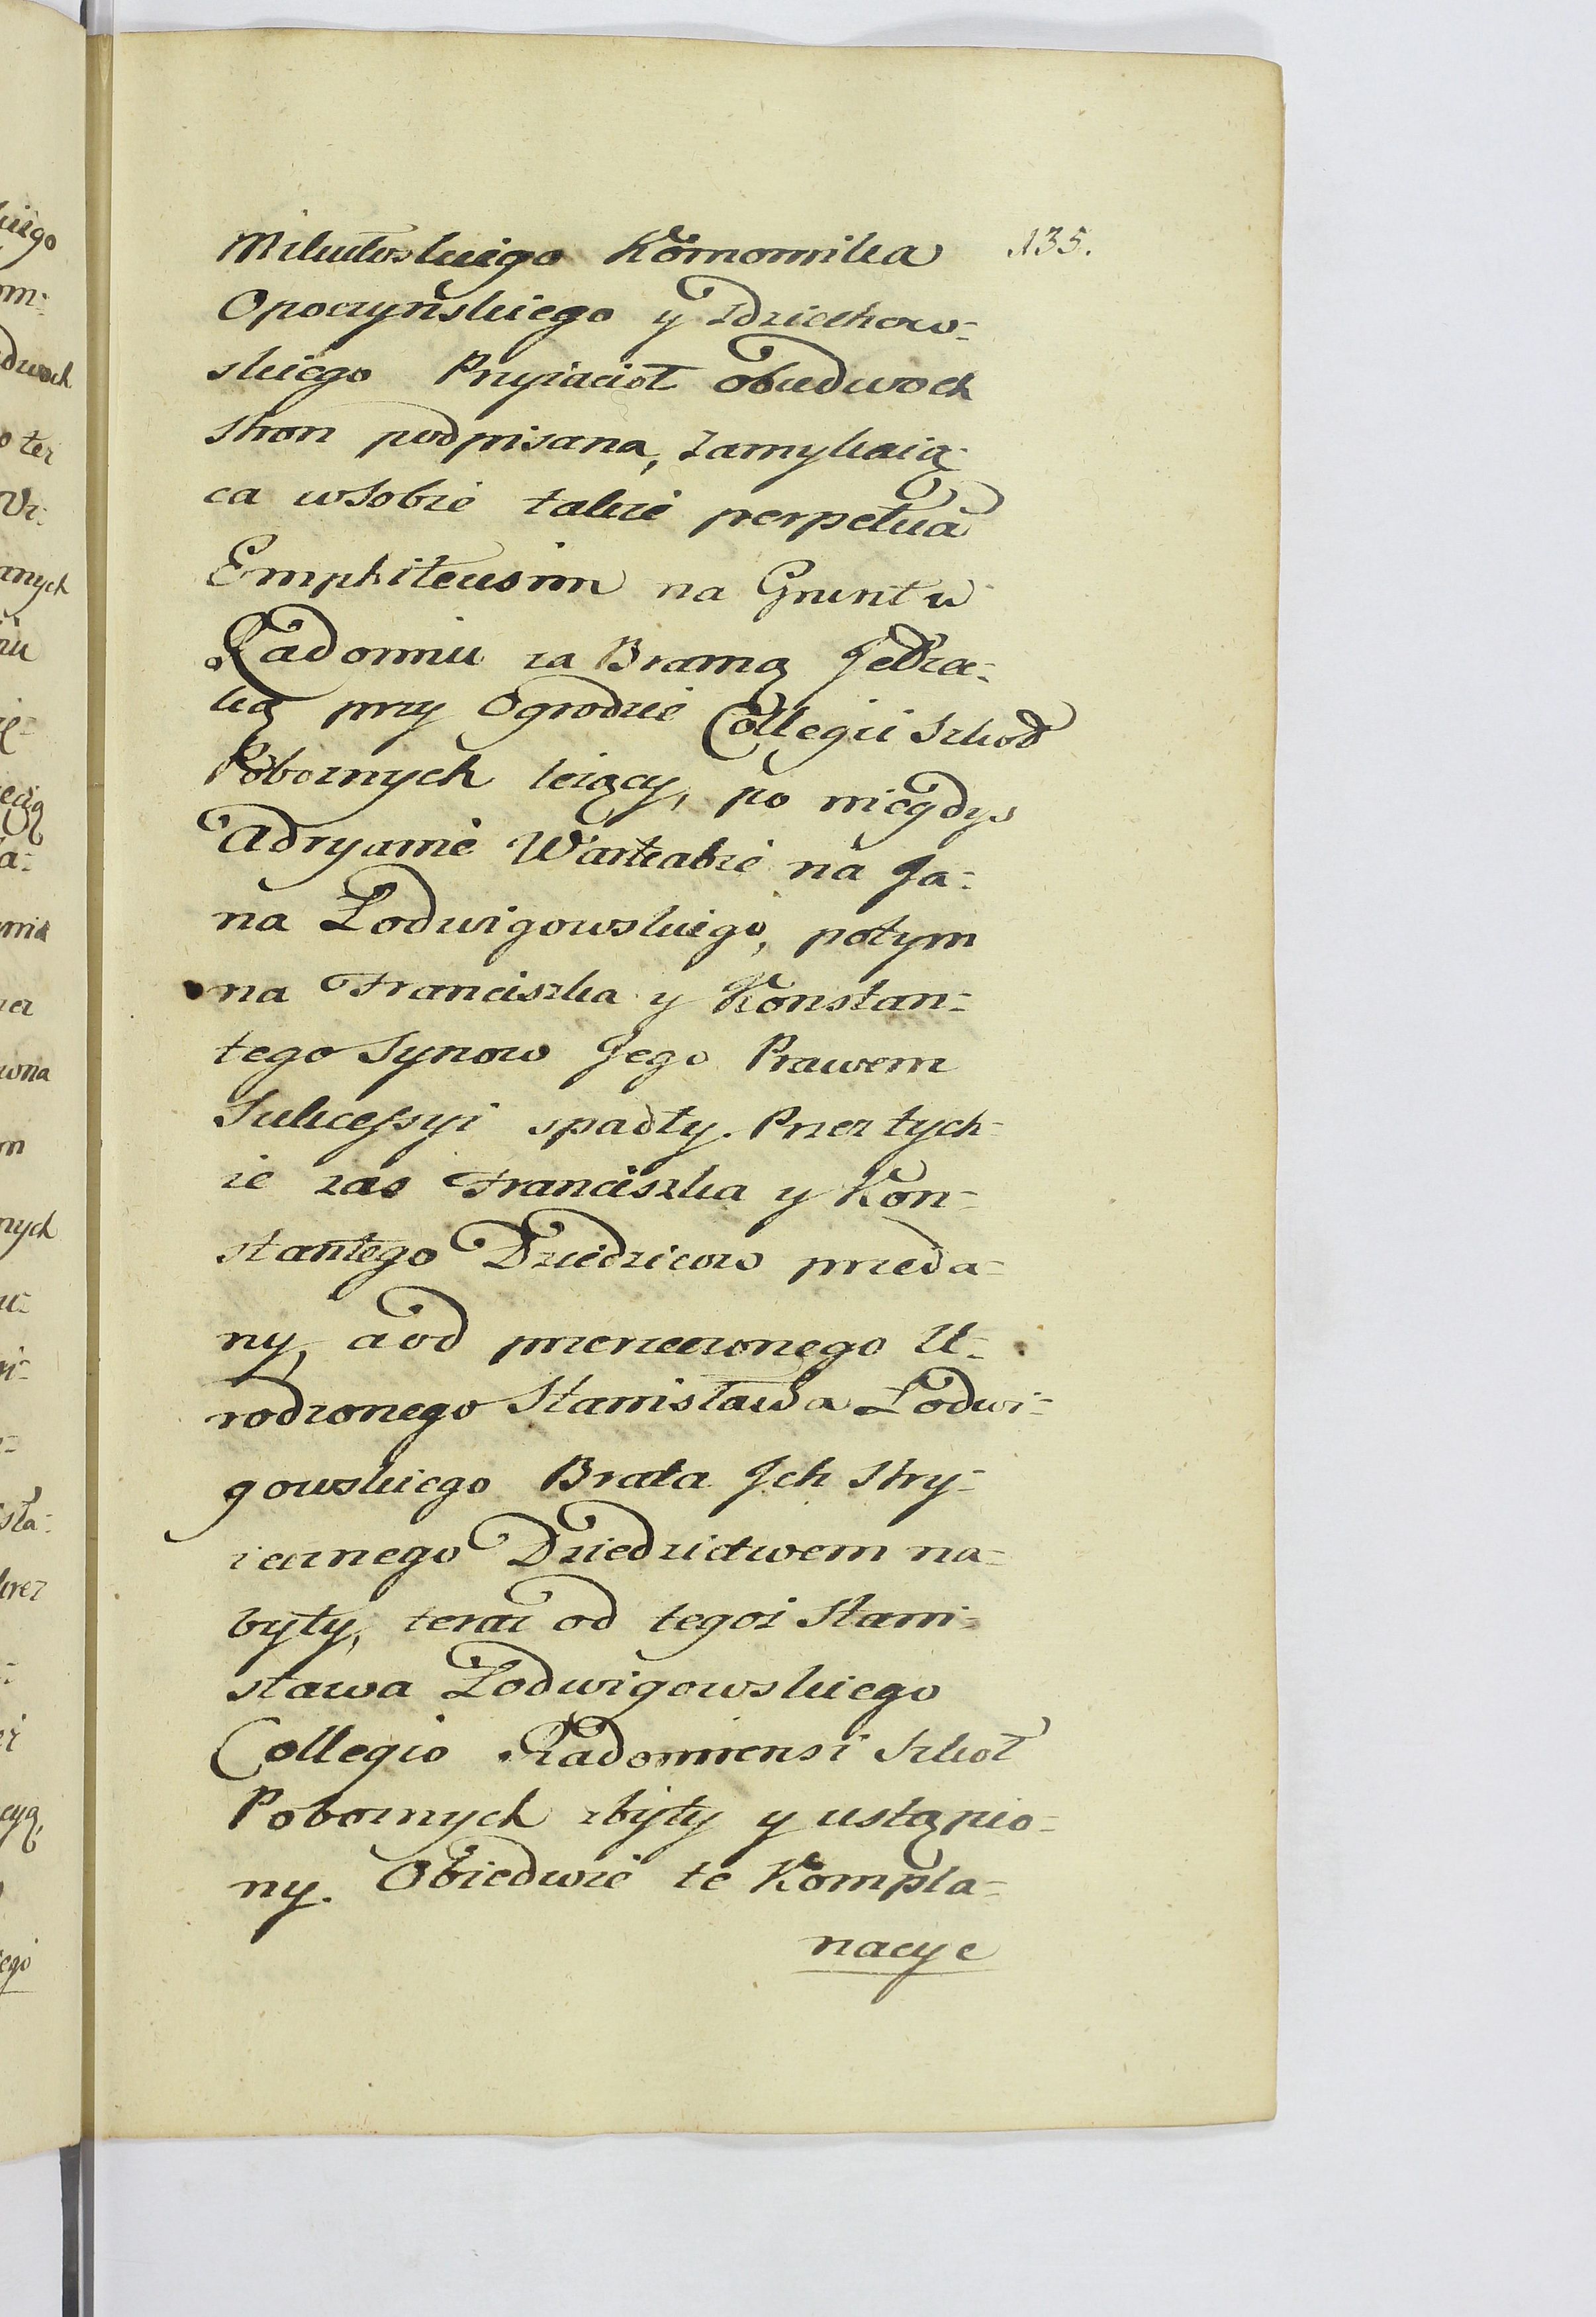 135.
Mikułoskiego Komornika
Opoczyńskiego y Idziechow=
skiego Przyiacioł obudwoch
stron podpisana, zamykaią=
ca wsobie takze perpetua
Emphiteusim na Gruntu
Radomiu za Bramą Jedza=
ką przy Ogrodzie Collegii Szkoł
Poboznych lezący, po niegdys
Adryanie Wartabie na Ja=
na Łodwigowskiego, potym
na Franciszka y Konstan=
tego Synow Jego Prawem
Sukcessyi spadły. Przez tych=
ze zas Franciszka y Kon=
stantego Dziedzicow przeda=
ny, a od przerzeczonego U=
rodzonego Stanisława Łodwi=
gowskiego Brata Ich Stry=
iecznego Dziedzictwem na=
byty, teraz od tegoz Stani=
sława Łodwigowskiego
Collegio Radomiensi Szkoł
Poboznych zbyty y ustąpio=
ny. Obiedwie te Kompla=
nacye